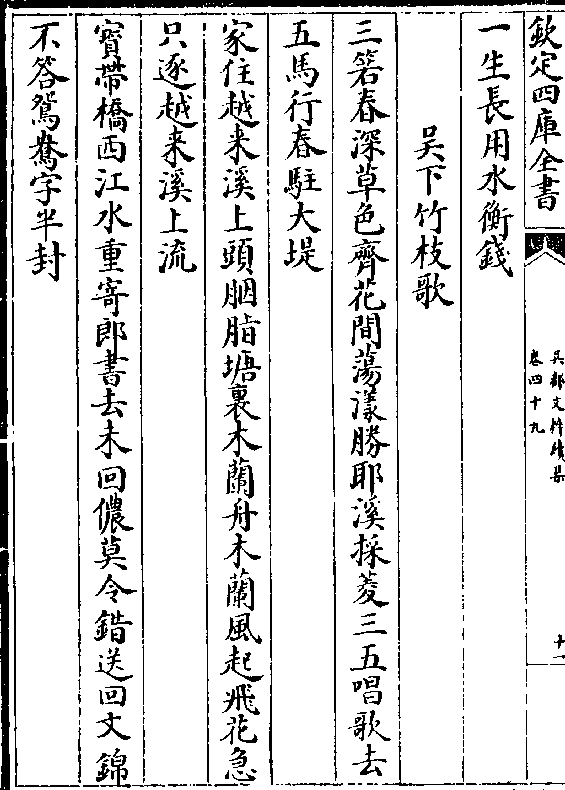 欽定四庫全書
吳都文粹續集
卷四十九
十一
一生長用水衡錢
吳下竹枝歌
三箬春深草色齊花間蕩漾勝耶溪採菱三五唱歌去
五馬行春駐大堤
家住越来溪上頭胭脂塘裏木蘭舟木蘭風起飛花急
只逐越来溪上流
寳帶橋西江水重寄郎書去未回儂莫令錯送回文錦
不答鴛鴦字半封